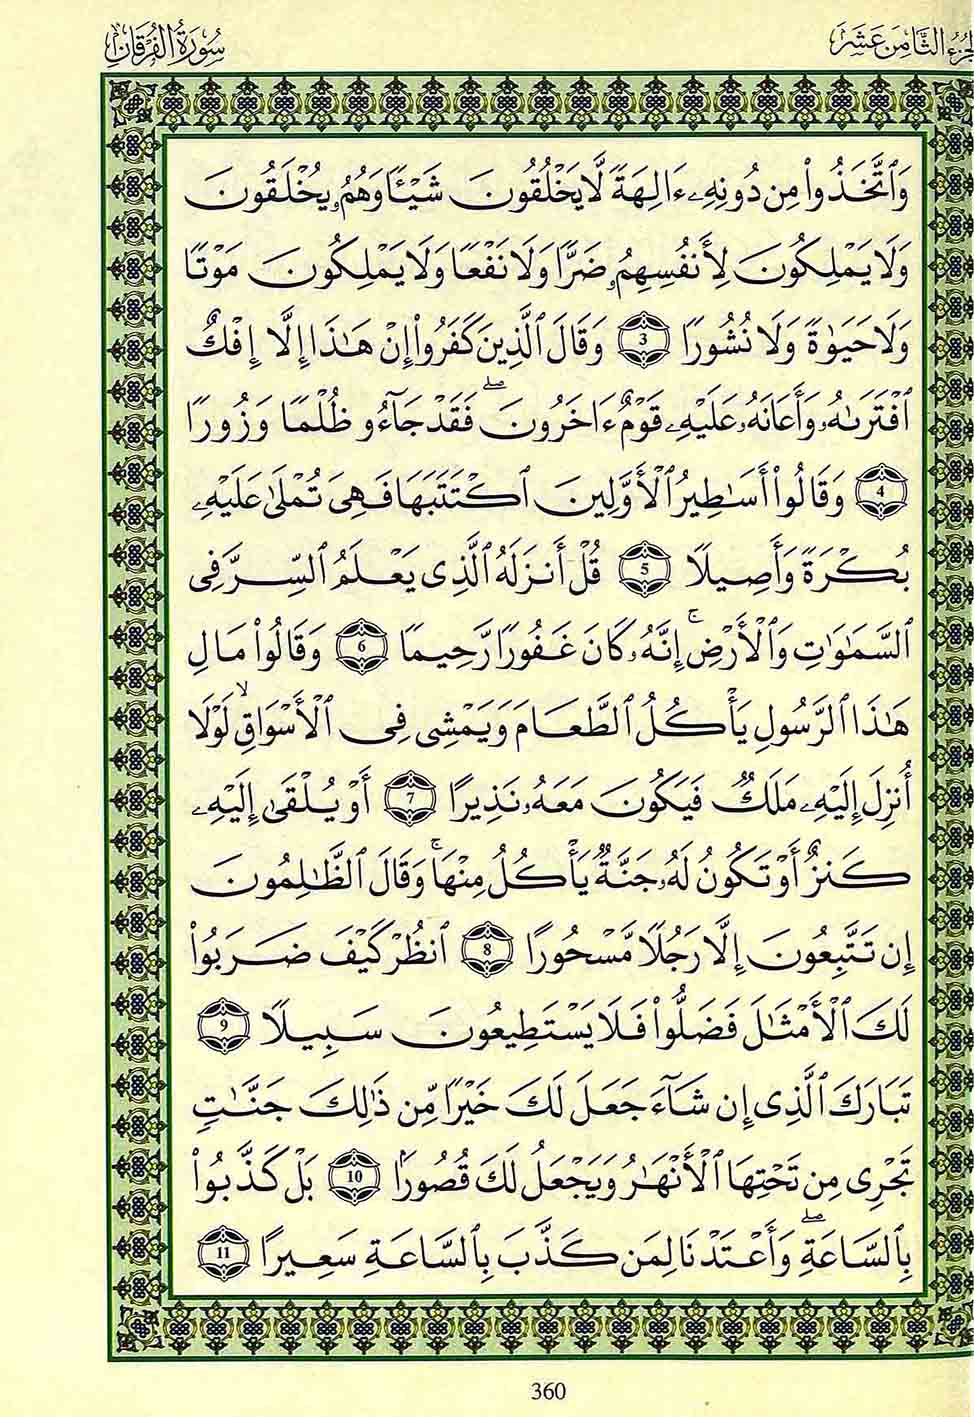 الجزء الثامن عشر
سورة الفرقان
وَٱتَّخَذُوا۟ مِن دُونِهِۦ ءَالِهَةً لَّا يَخْلُقُونَ شَيْـًٔا وَهُمْ يُخْلَقُونَ
وَلَا يَمْلِكُونَ لِأَنفُسِهِمُۥ ضَرًّا وَلَا نَفْعًا وَلَا يَمْلِكُونَ مَوْتًا
وَلَا حَيَوٰةً وَلَا نُشُورًا 3 وَقَالَ ٱلَّذِينَ كَفَرُوٓا۟ إِنْ هَـٰذَآ إِلَّآ إِفْكٌ
ٱفْتَرَىٰهُ وَأَعَانَهُۥ عَلَيْهِۦ قَوْمٌ ءَاخَرُونَ ۖ فَقَدْ جَآءُو ظُلْمًا وَزُورًا
4 وَقَالُوٓا۟ أَسَـٰطِيرُ ٱلْأَوَّلِينَ ٱكْتَتَبَهَا فَهِىَ تُمْلَىٰ عَلَيْهِۦ
بُكْرَةً وَأَصِيلًا 5 قُلْ أَنزَلَهُ ٱلَّذِى يَعْلَمُ ٱلسِّرَّ فِى
ٱلسَّمَـٰوَٰتِ وَٱلْأَرْضِ ۚ إِنَّهُۥ كَانَ غَفُورًا رَّحِيمًا 6 وَقَالُوا۟ مَالِ
هَـٰذَا ٱلرَّسُولِ يَأْكُلُ ٱلطَّعَامَ وَيَمْشِى فِى ٱلْأَسْوَاقِ ۙ لَوْلَآ
أُنزِلَ إِلَيْهِۦ مَلَكٌ فَيَكُونَ مَعَهُۥ نَذِيرًا 7 أَوْ يُلْقَىٰٓ إِلَيْهِۦ
كَنزٌ أَوْ تَكُونُ لَهُۥ جَنَّةٌ يَأْكُلُ مِنْهَا ۚ وَقَالَ ٱلظَّـٰلِمُونَ
إِن تَتَّبِعُونَ إِلَّا رَجُلًا مَّسْحُورًا 8 ٱنظُرْ كَيْفَ ضَرَبُوا۟
لَكَ ٱلْأَمْثَـٰلَ فَضَلُّوا۟ فَلَا يَسْتَطِيعُونَ سَبِيلًا 9
تَبَارَكَ ٱلَّذِىٓ إِن شَآءَ جَعَلَ لَكَ خَيْرًا مِّن ذَٰلِكَ جَنَّـٰتٍ
تَجْرِى مِن تَحْتِهَا ٱلْأَنْهَـٰرُ وَيَجْعَلُ لَكَ قُصُورًا 10 بَلْ كَذَّبُوا۟
بِٱلسَّاعَةِ ۖ وَأَعْتَدْنَا لِمَن كَذَّبَ بِٱلسَّاعَةِ سَعِيرًا 11
360